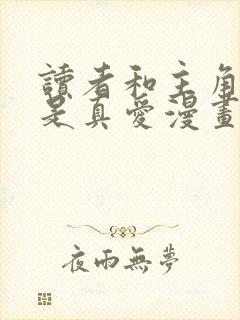 讀者和主角
是真愛漫畫
夜雨無夢